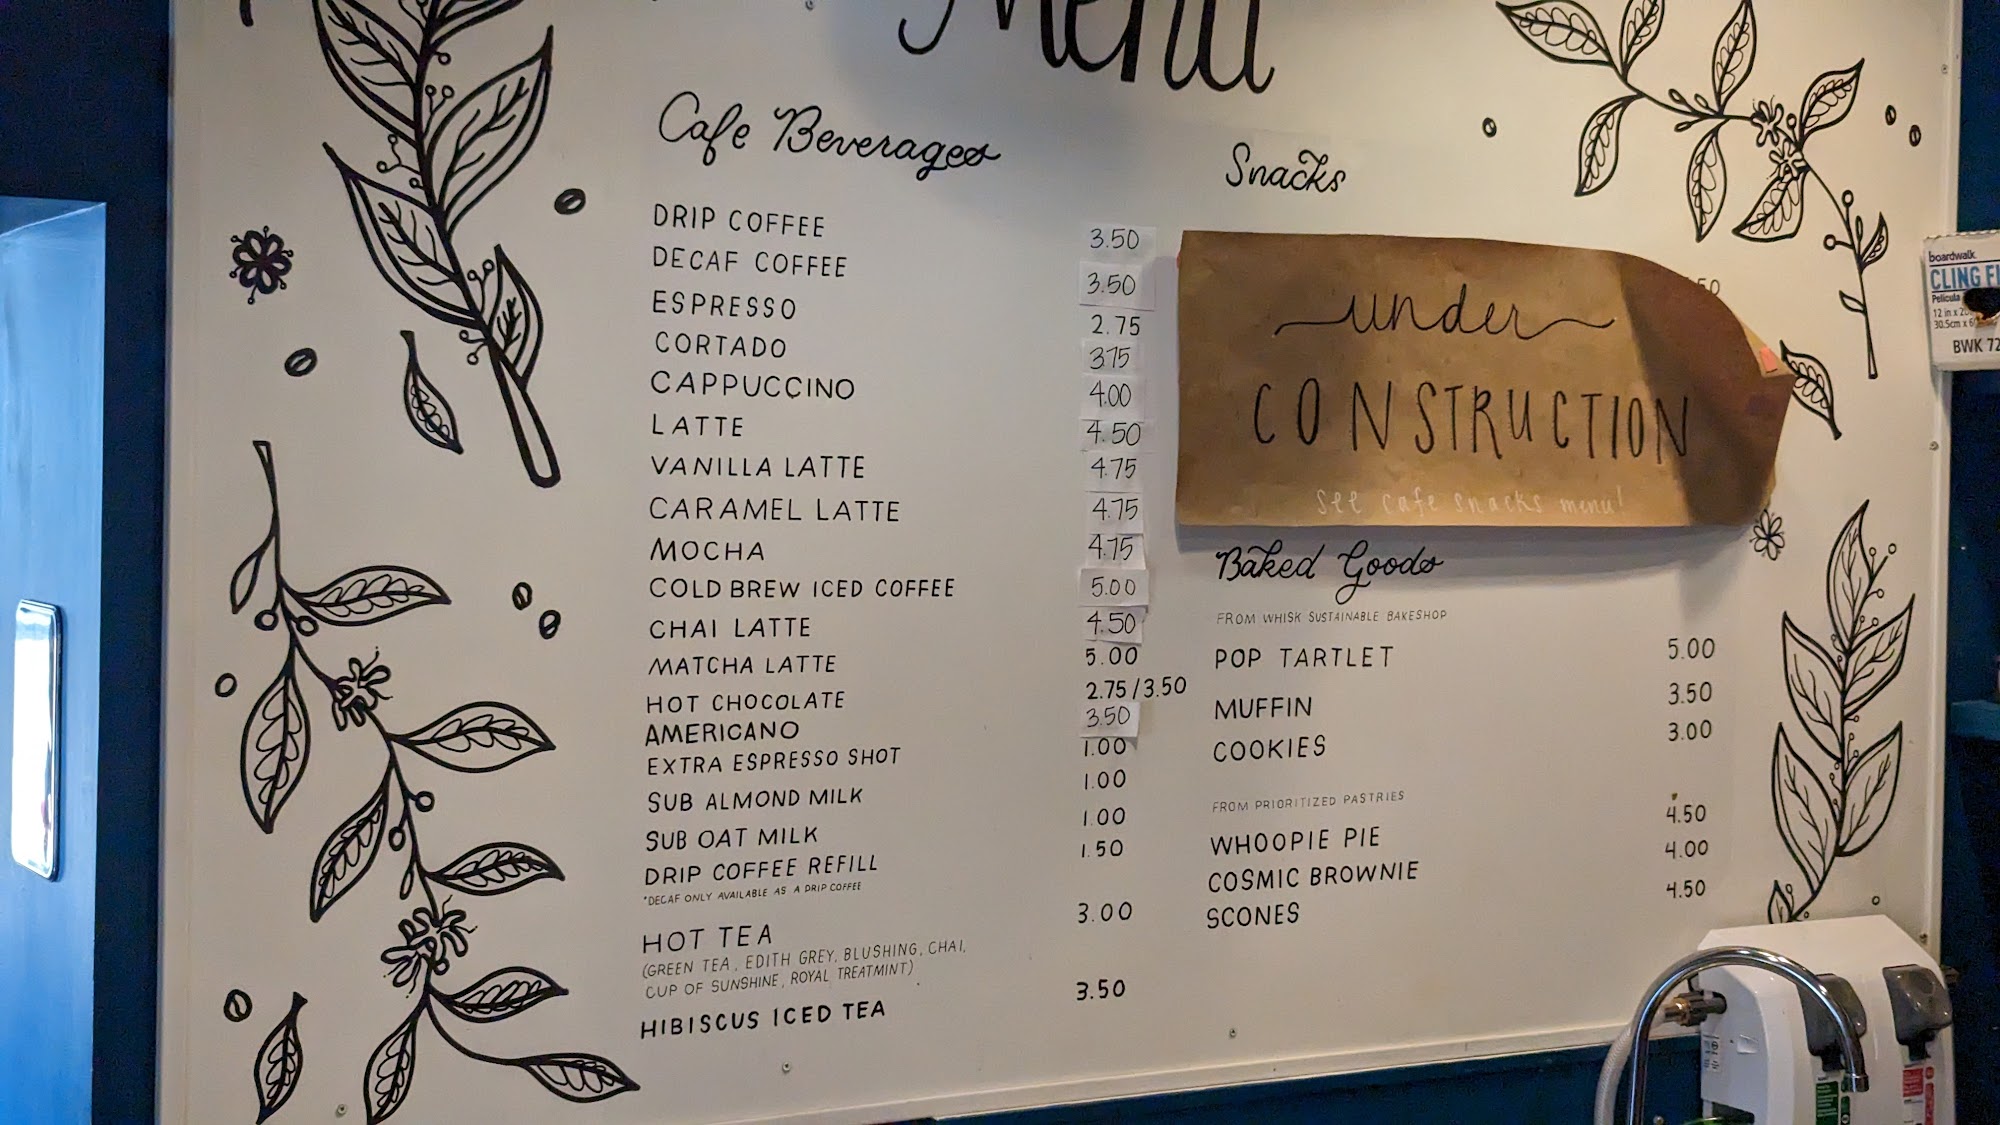 Menu
Cafe Beverages
DRIP COFFEE 3.50
DECAF COFFEE 3.50
ESPRESSO 2.75
CORTADO 3.75
CAPPUCCINO 4.00
LATTE 4.50
VANILLA LATTE 4.75
CARAMEL LATTE 4.75
MOCHA 4.75
COLD BREW ICED COFFEE 5.00
CHAI LATTE 4.50
MATCHA LATTE 5.00
HOT CHOCOLATE 2.75/3.50
AMERICANO 3.50
EXTRA ESPRESSO SHOT 1.00
SUB ALMOND MILK 1.00
SUB OAT MILK 1.00
DRIP COFFEE REFILL 1.50
*DECAF ONLY AVAILABLE AS A DRIP COFFEE
HOT TEA 3.00
(GREEN TEA, EDITH GREY, BLUSHING, CHAI,
CUP OF SUNSHINE, ROYAL TREATMINT)
HIBISCUS ICED TEA 3.50
Snacks
under
CONSTRUCTION
see cafe snacks menu!
Baked Goods
FROM WHISK SUSTAINABLE BAKESHOP
POP TARTLET 5.00
MUFFIN 3.50
COOKIES 3.00
FROM PRIORITIZED PASTRIES
WHOOPIE PIE 4.50
COSMIC BROWNIE 4.00
SCONES 4.50
boardwalk.
CLING
Pelicula
12 in x
30.5cm x
BWK 72